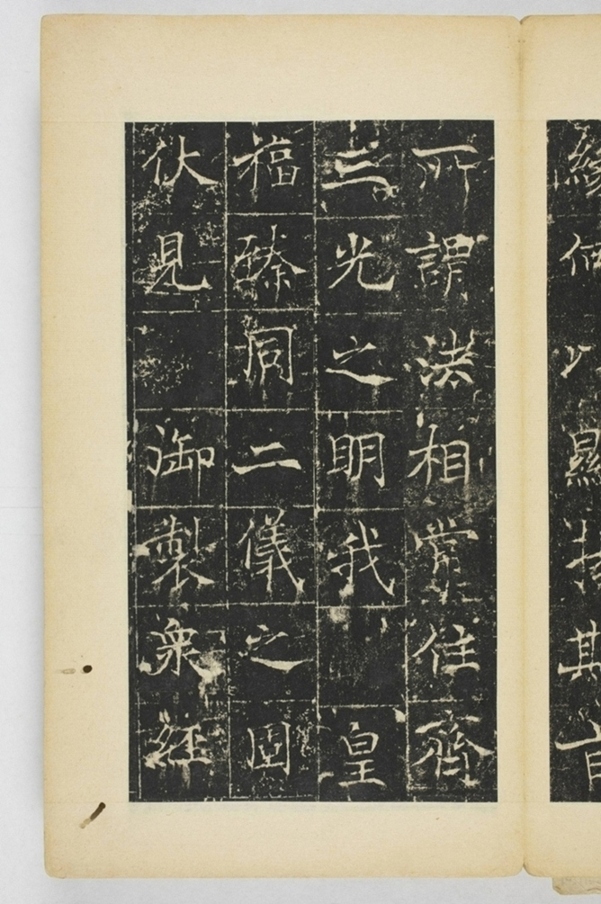 緣何以顯揚斯旨
所謂法相常住齊
三光之明我皇
福臻同二儀之固
伏見御製衆經